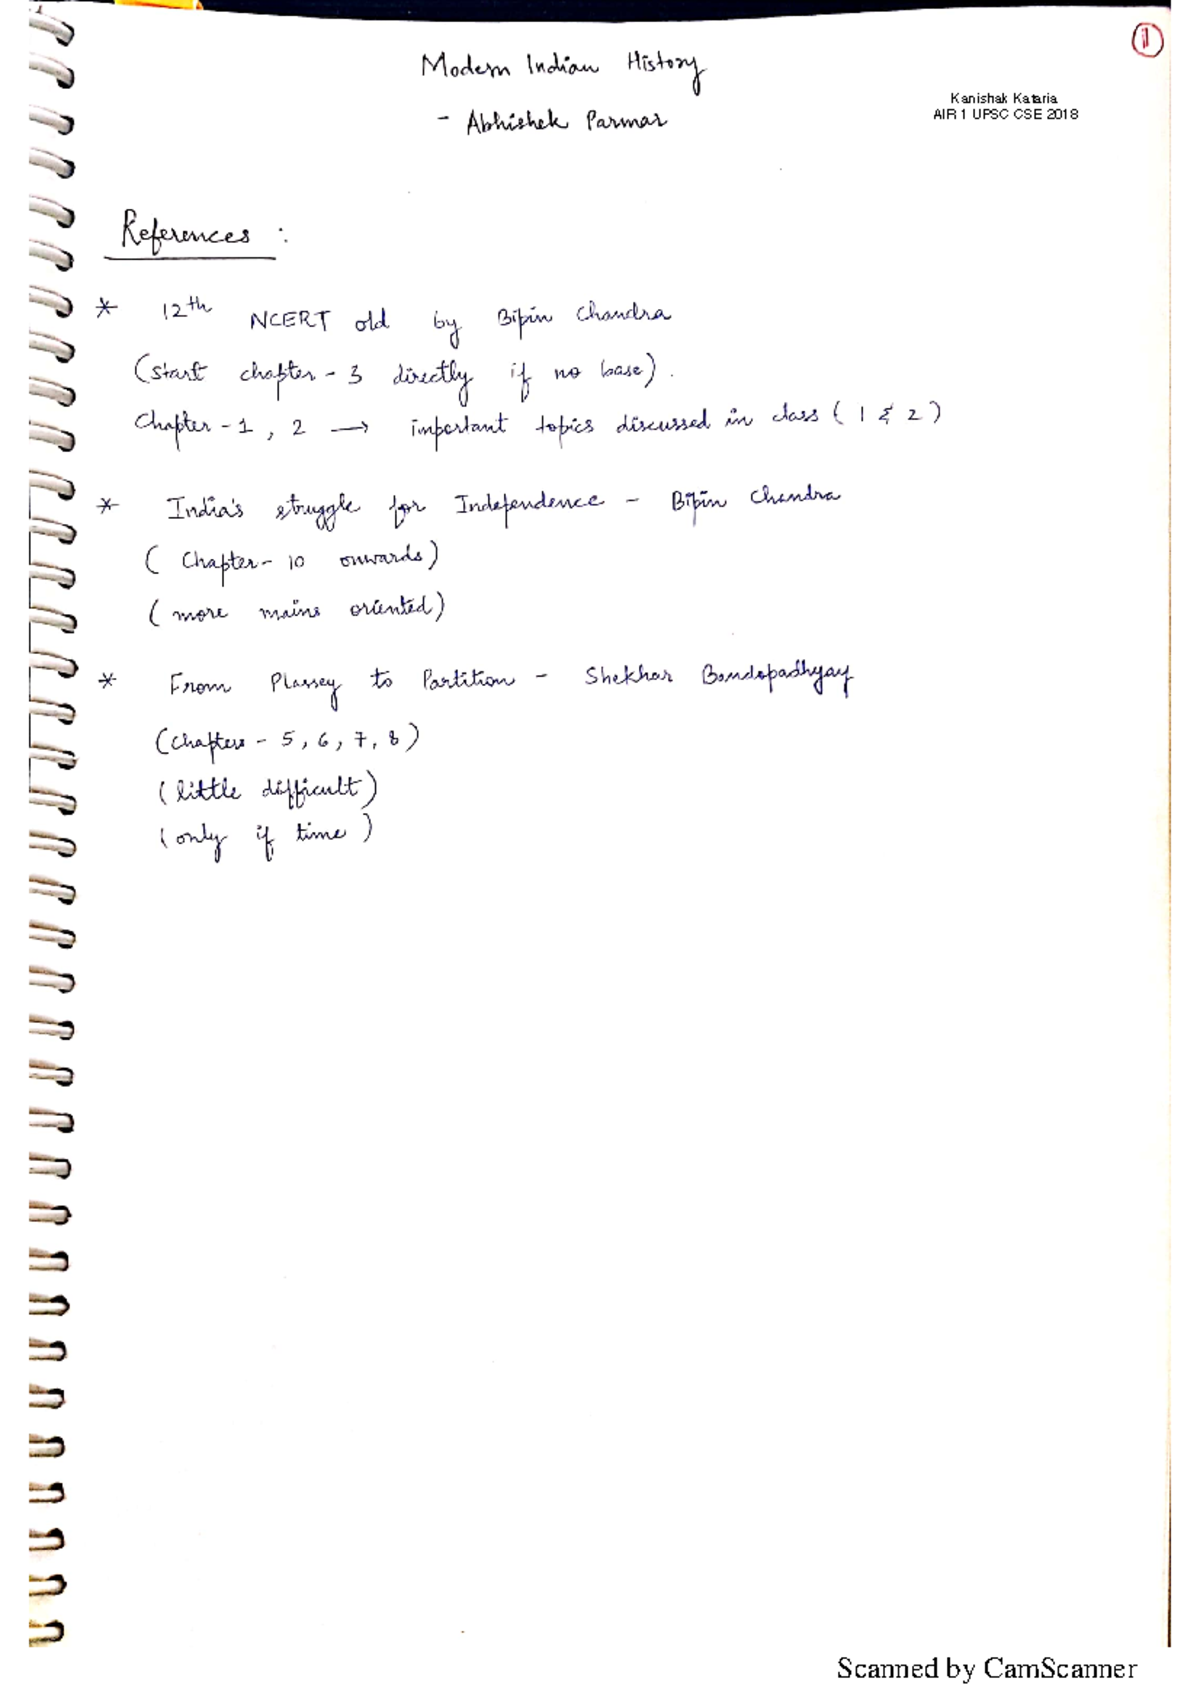 1
Modern Indian History
- Abhishek Parmar
Kanishak Kataria
AIR 1 UPSC CSE 2018
References :
* 12th NCERT old by Bipin Chandra
(start chapter - 3 directly if no base).
Chapter - 1, 2 → important topics discussed in class (1 & 2)
* India's struggle for Independence - Bipin Chandra
( Chapter - 10 onwards)
( more mains oriented)
* From Plassey to Partition - Shekhar Bandopadhyay
(Chapters - 5, 6, 7, 8)
(little difficult)
(only if time)
Scanned by CamScanner